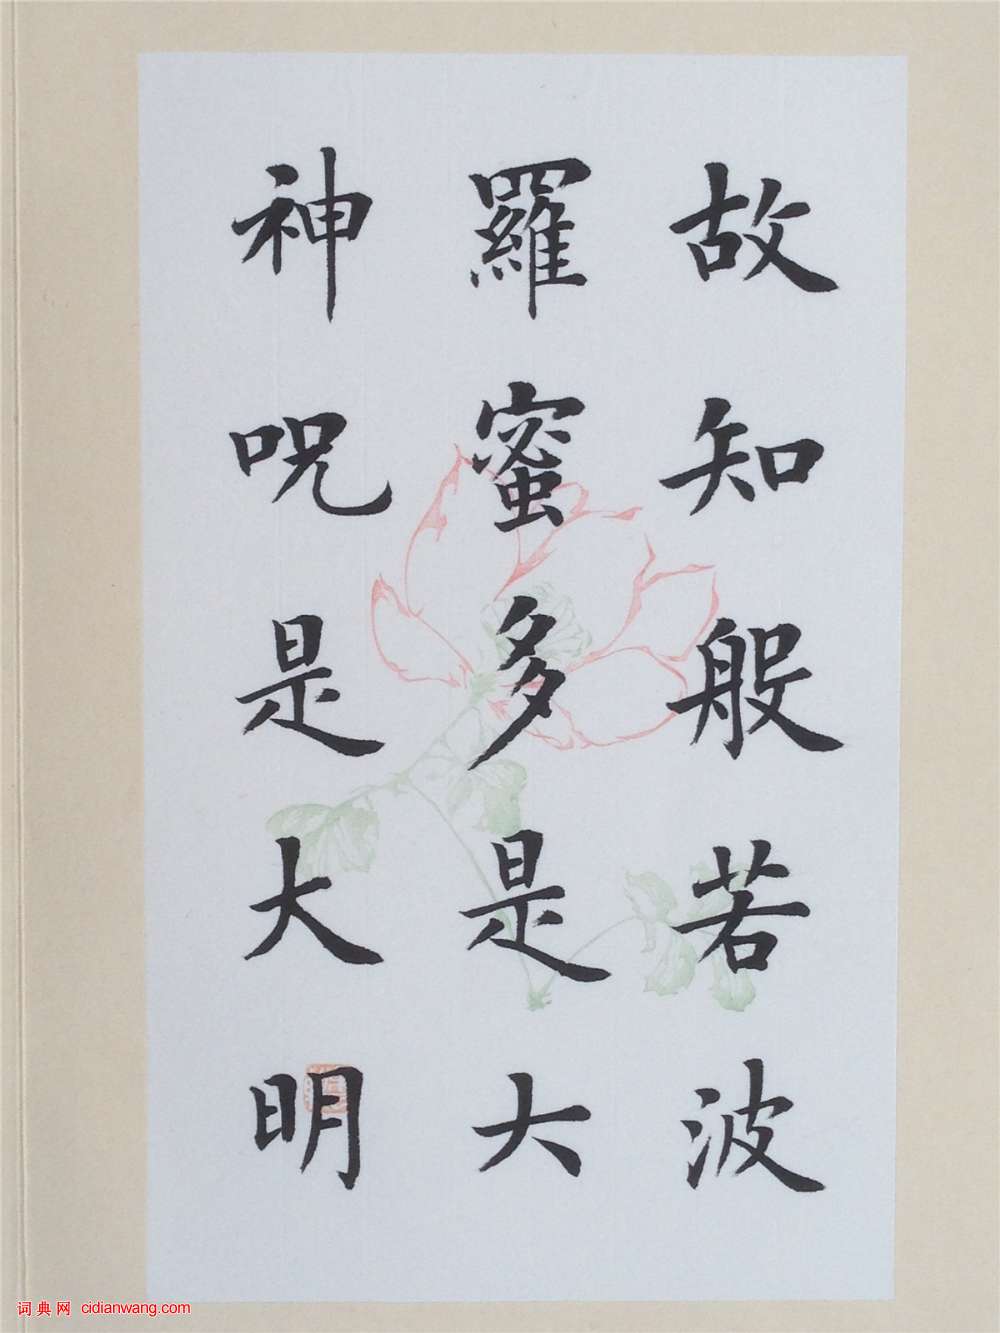 故知般若波
羅蜜多是大
神呪是大明
词典网 cidianwang.com